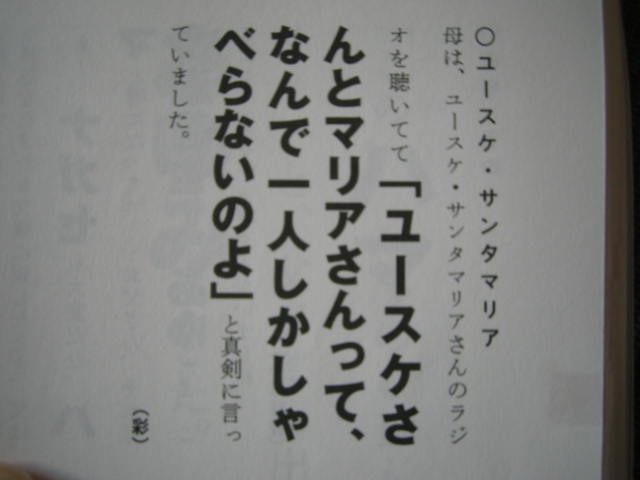 ○ユースケ・サンタマリア
母は、ユースケ・サンタマリアさんのラジ
オを聴いてて「ユースケさ
んとマリアさんって、
なんで一人しかしゃ
べらないのよ」と真剣に言っ
ていました。
（彩）